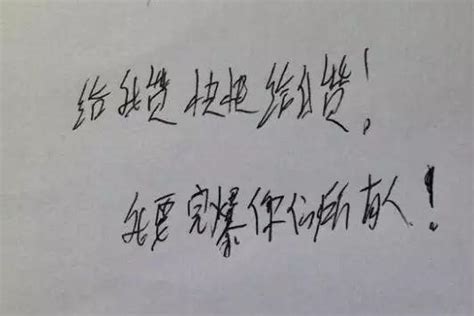 给我赞快把给我赞！
我要完爆你们所有人！